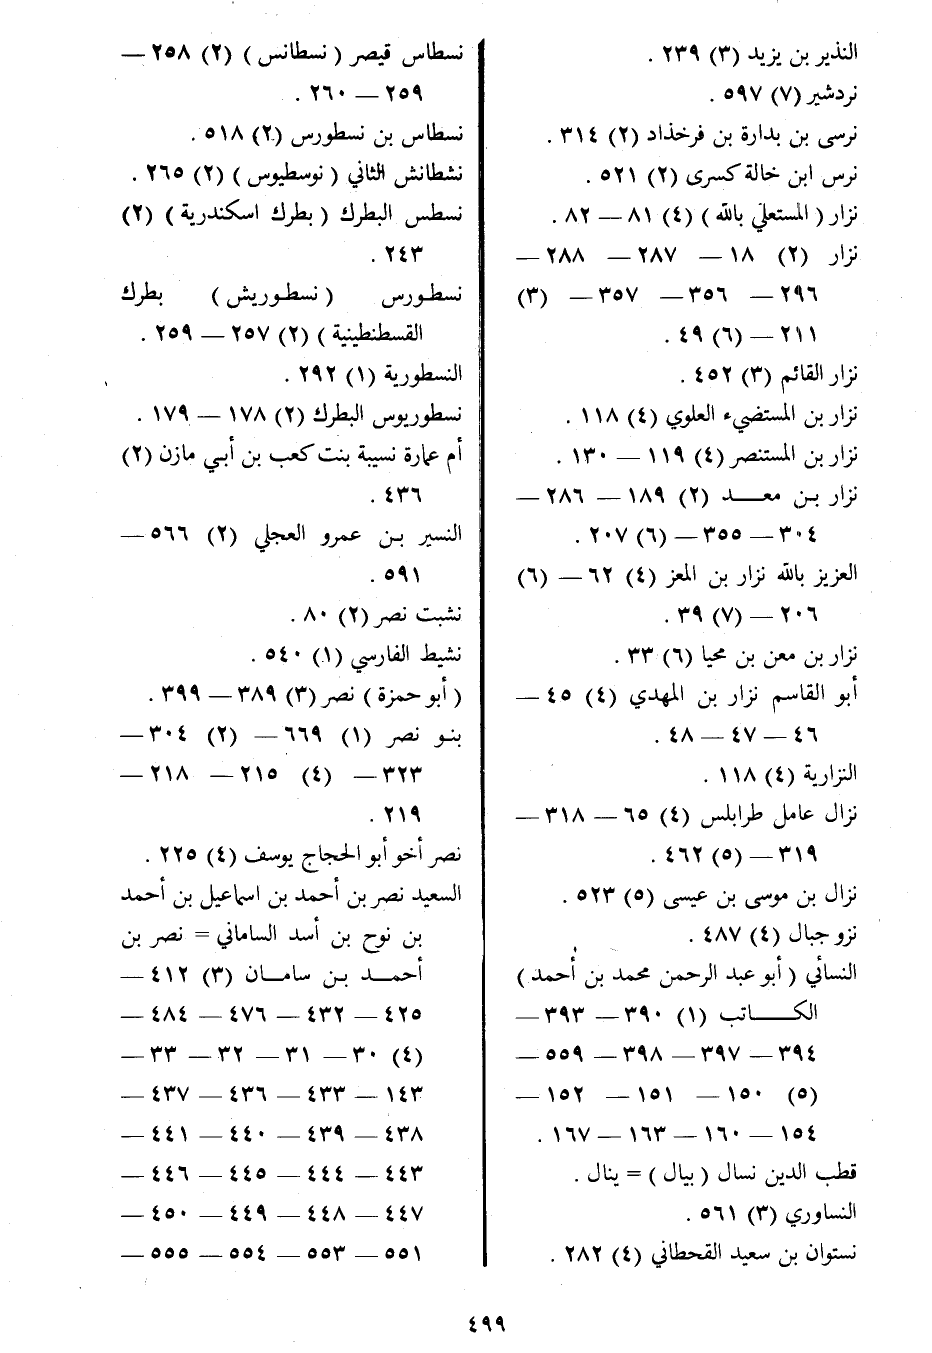 النذير بن يزيد (٣) ٢٣٩ .
نردشير (٧) ٥٩٧ .
نرسى بن بدارة بن فرخذاد (٢) ٣١٤ .
نرس ابن خالة كسرى (٢) ٥٢١ .
نزار ( المستعلي بالله ) (٤) ٨١ — ٨٢ .
نزار (٢) ١٨ — ٢٨٧ — ٢٨٨ —
٢٩٦ — ٣٥٦ — ٣٥٧ — (٣)
٢١١ — (٦) ٤٩ .
نزار القائم (٣) ٤٥٢ .
نزار بن المستضيء العلوي (٤) ١١٨ .
نزار بن المستنصر (٤) ١١٩ — ١٣٠ .
نزار بن معد (٢) ١٨٩ — ٢٨٦ —
٣٠٤ — ٣٥٥ — (٦) ٢٠٧ .
العزيز بالله نزار بن المعز (٤) ٦٢ — (٦)
٢٠٦ — (٧) ٣٩ .
نزار بن معن بن محيا (٦) ٣٣ .
أبو القاسم نزار بن المهدي (٤) ٤٥ —
٤٦ — ٤٧ — ٤٨ .
النزارية (٤) ١١٨ .
نزال عامل طرابلس (٤) ٦٥ — ٣١٨ —
٣١٩ — (٥) ٤٦٢ .
نزال بن موسى بن عيسى (٥) ٥٢٣ .
نزو جبال (٤) ٤٨٧ .
النسائي ( أبو عبد الرحمن محمد بن أحمد )
الكاتب (١) ٣٩٠ — ٣٩٣ —
٣٩٤ — ٣٩٧ — ٣٩٨ — ٥٥٩ —
(٥) ١٥٠ — ١٥١ — ١٥٢ —
١٥٤ — ١٦٠ — ١٦٣ — ١٦٧ .
قطب الدين نسال ( بيال ) = ينال .
النساوري (٣) ٥٦١ .
نستوان بن سعيد القحطاني (٤) ٢٨٢ .
نسطاس قيصر ( نسطانس ) (٢) ٢٥٨ —
٢٥٩ — ٢٦٠ .
نسطاس بن نسطورس (٢) ٥١٨ .
نشطانش الثاني ( نوسطيوس ) (٢) ٢٦٥ .
نسطس البطرك ( بطرك اسكندرية ) (٢)
٢٤٣ .
نسطورس ( نسطوريش ) بطرك
القسطنطينية ) (٢) ٢٥٧ — ٢٥٩ .
النسطورية (١) ٢٩٢ .
نسطوريوس البطرك (٢) ١٧٨ — ١٧٩ .
أم عمارة نسيبة بنت كعب بن أبي مازن (٢)
٤٣٦ .
النسير بن عمرو العجلي (٢) ٥٦٦ —
٥٩١ .
نشبت نصر (٢) ٨٠ .
نشيط الفارسي (١) ٥٤٠ .
( أبو حمزة ) نصر (٣) ٣٨٩ — ٣٩٩ .
بنو نصر (١) ٦٦٩ — (٢) ٣٠٤ —
٣٢٣ — (٤) ٢١٥ — ٢١٨ —
٢١٩ .
نصر أخو أبو الحجاج يوسف (٤) ٢٢٥ .
السعيد نصر بن أحمد بن اسماعيل بن أحمد
بن نوح بن أسد الساماني = نصر بن
أحمد بن سامان (٣) ٤١٢ —
٤٢٥ — ٤٣٢ — ٤٧٦ — ٤٨٤ —
(٤) ٣٠ — ٣١ — ٣٢ — ٣٣ —
١٤٣ — ٤٣٣ — ٤٣٦ — ٤٣٧ —
٤٣٨ — ٤٣٩ — ٤٤٠ — ٤٤١ —
٤٤٣ — ٤٤٤ — ٤٤٥ — ٤٤٦ —
٤٤٧ — ٤٤٨ — ٤٤٩ — ٤٥٠ —
٥٥١ — ٥٥٣ — ٥٥٤ — ٥٥٥ —
٤٩٩